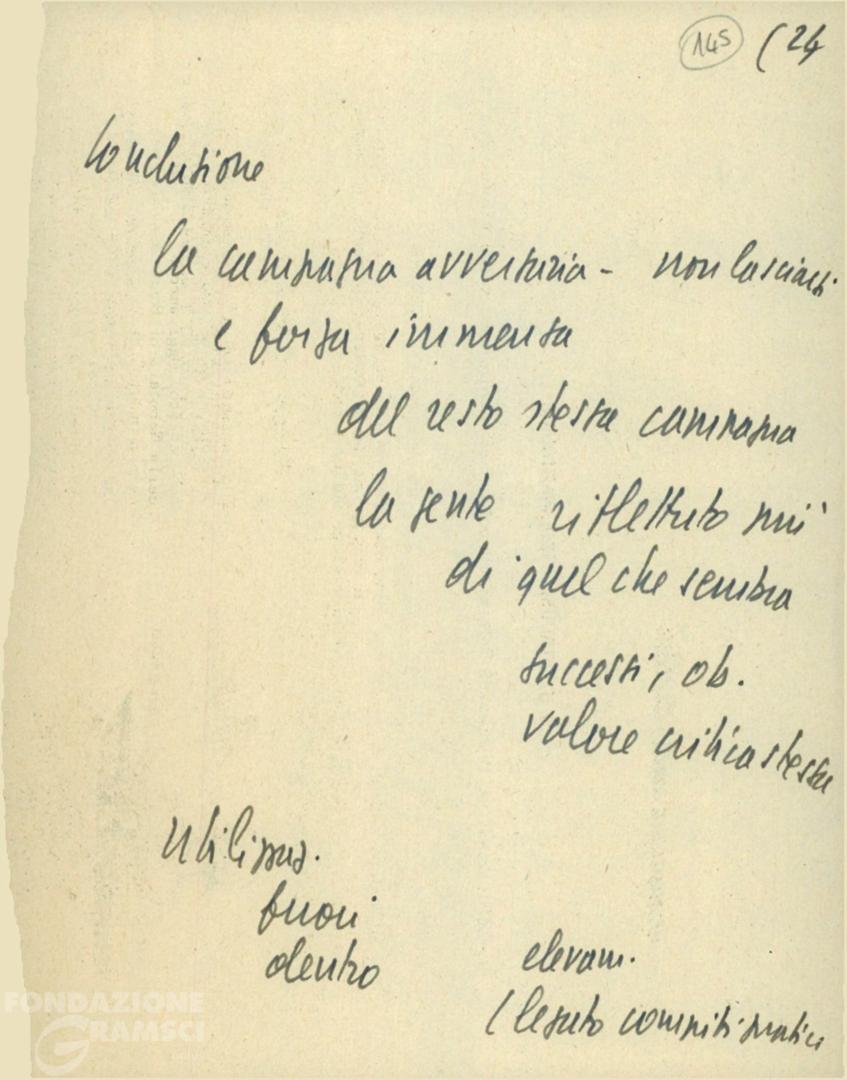 145 (24
Conclusione
la campagna avversaria - non lasciarsi
è forza immensa
del resto stessa campagna
la gente riflettuto più
di quel che sembra
successi, ob.
valore critica stessa
Utilizzaz.
fuori
dentro
elevam.
(legato compiti pratici
FONDAZIONE
GRAMSCI